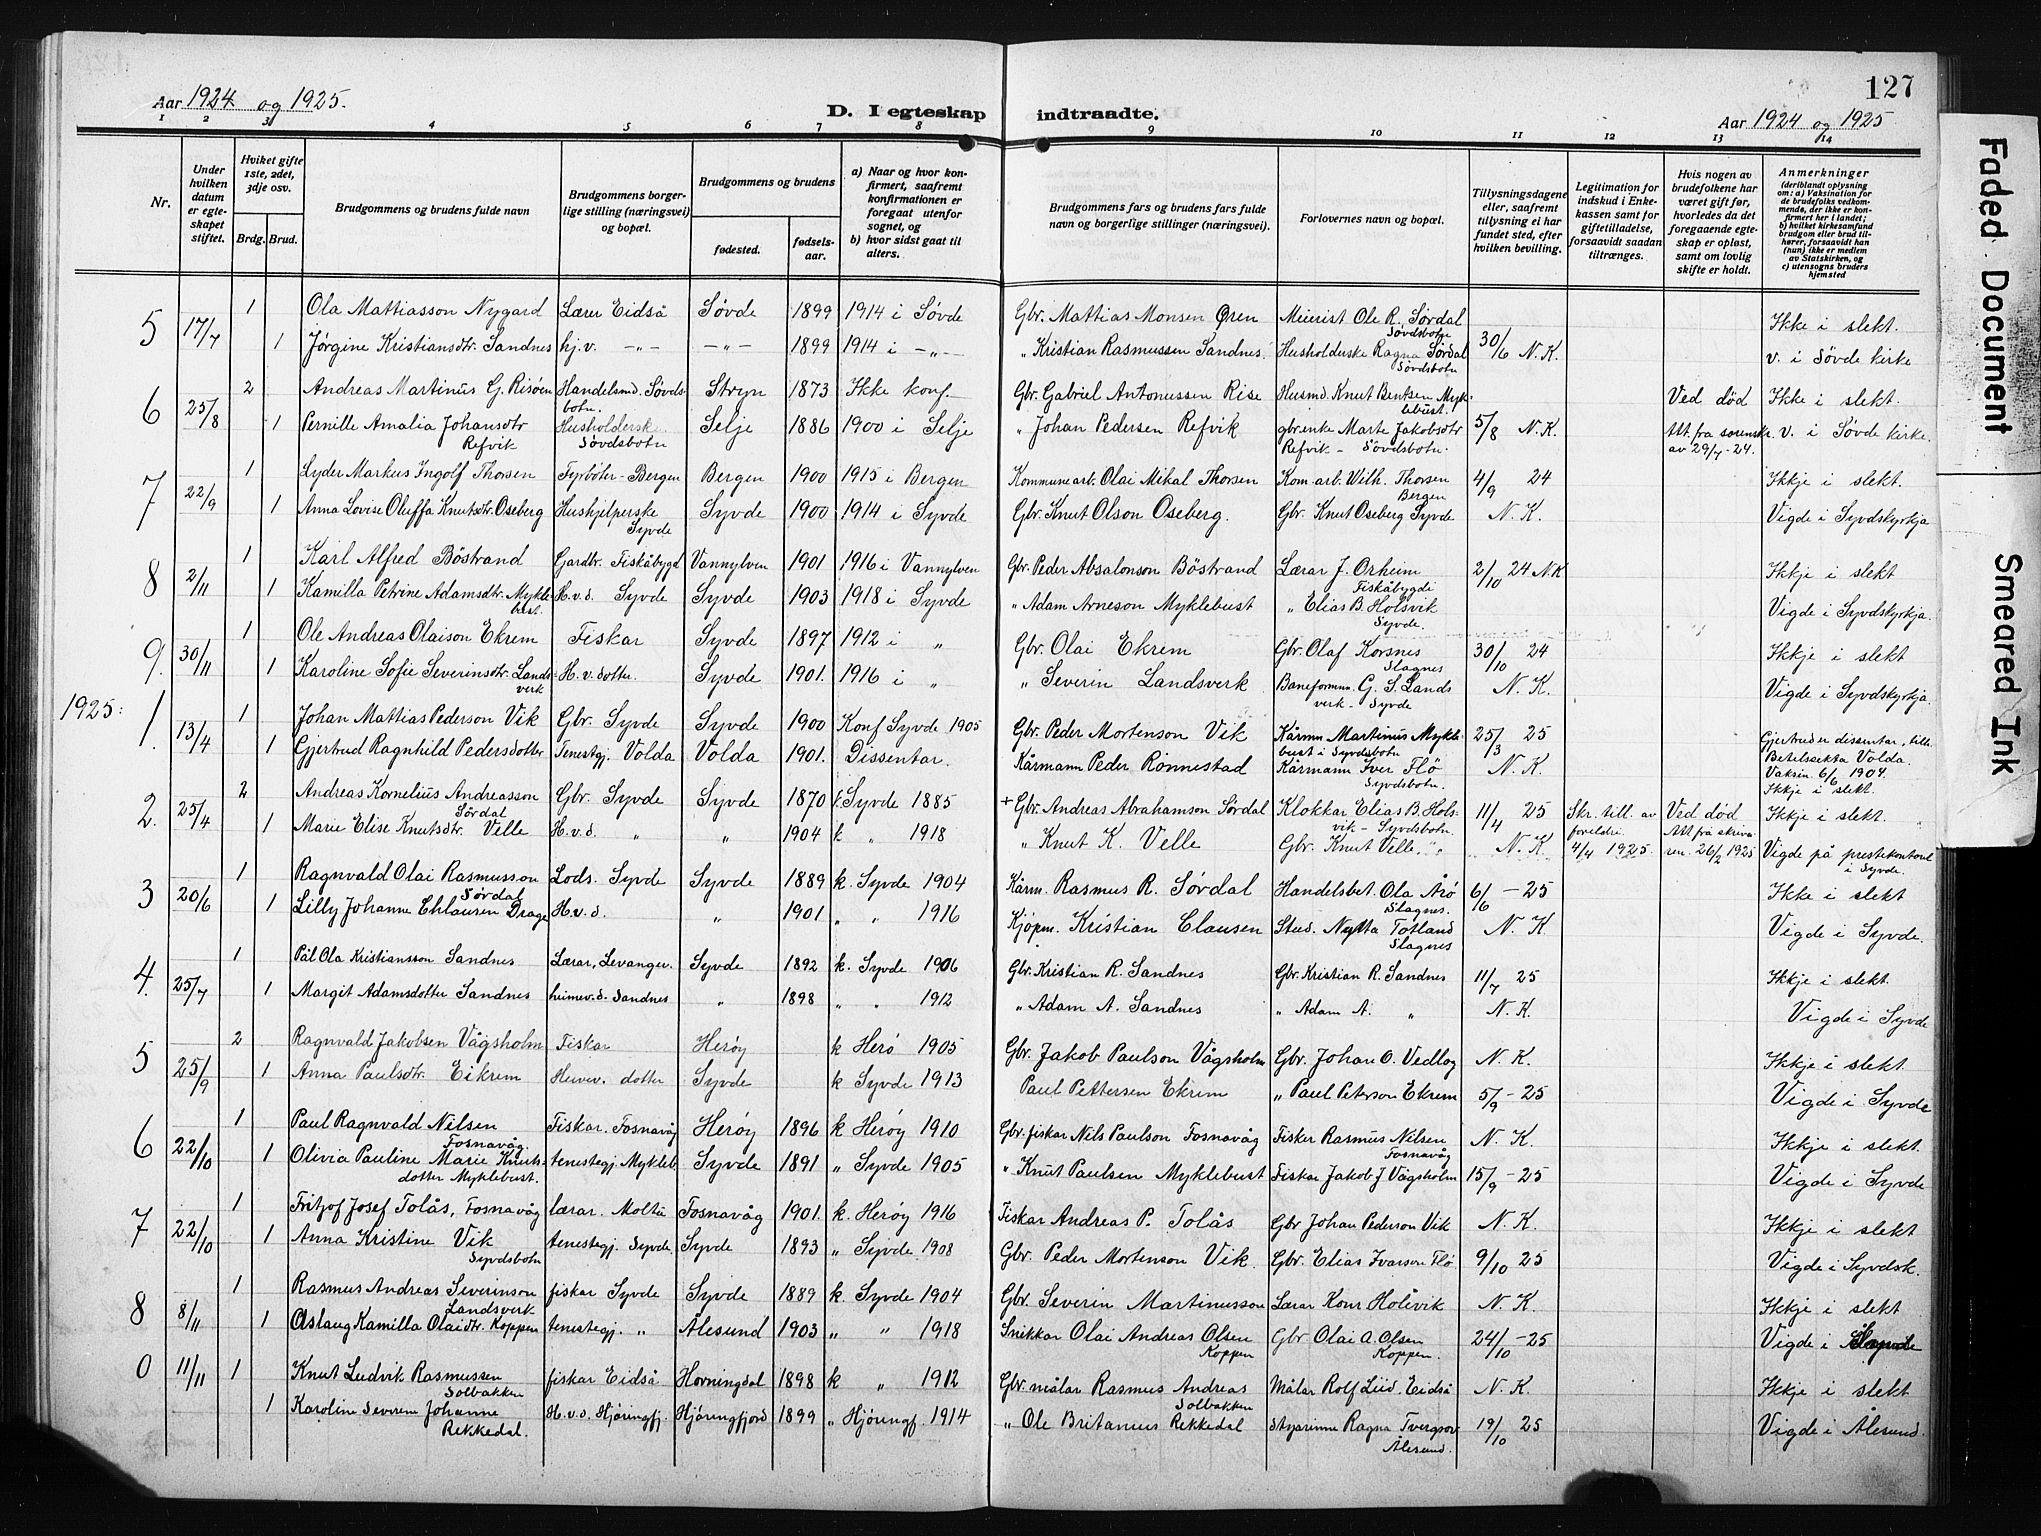 127
Aar 1924 og 1925.
D. I egteskap indtraadte.
Aar 1924 og 1925
1 2 3 4 5 6 7 8 9 10 11 12 13 14
Nr.
Under hvilken datum er egteskapet stiftet.
Hviket gifte 1ste, 2det, 3dje osv.
Brdg. Brud.
Brudgommens og brudens fulde navn
Brudgommens borgerlige stilling (næringsvei) og bopæl.
Brudgommens og brudens
fødested.
fødselsaar.
a) Naar og hvor konfirmert, saafremt konfirmationen er foregaat utenfor sognet, og
b) hvor sidst gaat til alters.
Brudgommens fars og brudens fars fulde navn og borgerlige stillinger (næringsvei).
Forlovernes navn og bopæl.
Tillysningsdagene eller, saafremt tillysning ei har fundet sted, efter hvilken bevilling.
Legitimation for indskud i Enkekassen samt for giftetilladelse, forsaavidt saadan tiltrænges.
Hvis nogen av brudefolkene har været gift før, hvorledes da det foregaaende egteskap er opløst, samt om lovlig skifte er holdt.
Anmerkninger
(deriblandt oplysning om: a) Vaksination for de brudefolks vedkommende, der ikke er konfirmert her i landet; b) hvilket kirkesamfund brudgom eller brud tilhører, forsaavidt han (hun) ikke er medlem av Statskirken, og c) utensogns bruders hjemsted
5 17/7 1 Ola Mattiasson Nygard Lærer Eidså Søvde 1899 1914 i Søvde Gbr. Mattias Monsen Øren Meierist Ole R. Sørdal Søvdsbotn 30/6 N.K. Ikke i slekt.
1 Jørgine Kristiansdtr. Sandnes hj.v. -"- -"- 1899 1914 i -"- " Kristian Rasmussen Sandnes. Husholderske Ragna Sørdal Søvdsbotn v. i Søvde kirke
6 25/8 2 Andreas Martinus G. Risøen Handelsmd. Søvdsbotn. Stryn 1873 Ikke konf. Gbr. Gabriel Antonussen Rise Husmd. Knut Bentsen Myklebust. 5/8 N.K. Ved død Ikke i slekt.
1 Pernille Amalia Johansdtr Refvik Husholdersk Søvdsbotn Selje 1886 1900 i Selje " Johan Pedersen Refvik gbr.enke Marte Jakobsdtr Refvik - Søvdsbotn. Att. fra sorenskr. av 29/7-24. v. i Søvde kirke.
7 22/9 1 Lyder Markus Ingolf Thorsen Fyrbøter - Bergen Bergen 1900 1915 i Bergen Kommunearb. Olai Mikal Thorsen Kom.arb. Wilh. Thorsen Bergen 4/9 24 Ikkje i slekt.
1 Anna Lovise Oluffa Knutsdtr. Oseberg Hushjelperske Syvde Syvde 1900 1914 i Syvde Gbr. Knut Olson Oseberg. Gbr. Knut Oseberg Syvde N.K. Vigde i Syvdskyrkja
8 2/11 1 Karl Alfred Böstrand Gardbr. Fiskåbygd Vannylven 1901 1916 i Vannylven Gbr. Peder Absalonson Böstrand Lærar J. Orheim Fiskåbygdi 2/10 24 N.K Ikkje i slekt
1 Kamilla Petrine Adamsdtr. Myklebust. H.v.d. Syvde Syvde 1903 1918 i Syvde " Adam Arneson Myklebust " Elias B. Holsvik Syvde. Vigde i Syvdskyrkja.
9. 30/11 1 Ole Andreas Olaison Ekrem Fiskar Syvde 1897 1912 i " Gbr. Olai Ekrem Gbr. Olaf Korsnes Slagnes 30/10 24 Ikkje i slekt
1 Karoline Sofie Severinsdtr. Landsverk H.v. dotter. Syvde 1901. 1916 i " " Severin Landsverk Baneformn. G. S. Landsverk - Syvde N.K. Vigde i Syvdskyrkja
1925:
1. 13/4 1 Johan Mattias Pederson Vik Gbr. Syvde Syvde 1900 Konf Syvde 1905 Gbr. Peder Mortenson Vik Kårmn Martinus Myklebust i Syvdsbotn 25/3 25 Gjertrud er dissentar, tilh. Betelsekta Volda. Vaksin. 6/6 1904. Ikkje i slekt.
1 Gjertrud Ragnhild Pedersdotter Tenestgj. Volda Volda 1901. Dissentar. Kårmann Peder Rönnestad Kårmann Iver Flö Syvdsbotn. N.K.
2. 25/4 2 Andreas Kornelius Andreasson Sördal Gbr. Syvde Syvde 1870 k. Syvde 1885 + Gbr. Andreas Abrahamson Sördal Klokkar Elias B. Holsvik - Syvdsbotn. 11/4 25 Skr. till. av foreldre 4/4 1925. Ved död Att frå skrivaren. 26/2 1925 Ikkje i slekt.
1 Marie Elise Knutsdtr. Velle H.v.d. " " 1904 k " 1918 " Knut K. Velle Gbr. Knut Velle. " " N.K. Vigde på prestekontoret i Syvde.
3 20/6 1 Ragnvald Olai Rasmusson Sördal Lods. Syvde Syvde 1889 k. Syvde 1904 Kårm. Rasmus R. Sördal Handelsbet. Ola Årö Slagnes. 6/6 - 25 Ikkje i slekt
1 Lilly Johanne Chlausen Drage H.v.d. " 1901 " " 1916 Kjöpm. Kristian Clausen Stud. Nytta Totland Slagnes N. K. Vigde i Syvde.
4. 25/7 1 Pål Ola Kristiansson Sandnes Lærar, Levanger. Syvde 1892 k. Syvde 1906 Gbr. Kristian R. Sandnes Gbr. Kristian R. Sandnes 11/7 25 Ikkje i slekt.
1 Margit Adamsdotter Sandnes heimev.d. Sandnes " 1898 " " 1912 " Adam A. Sandnes " Adam A. " N. K. Vigde i Syvde
5 25/9 2 Ragnvald Jakobsen Vågsholm Fiskar Heröy k Herö 1905 Gbr. Jakob Paulson Vågsholm Gbr. Johan O. Vedlog N. K. Ikkje i slekt.
1 Anna Paulsdtr. Eikrem Heimev. dotter Syvde k Syvde 1913 Paul Pettersen Ekrem " Paul Peterson Ekrem 5/9 - 25 Vigde i Syvde
6 22/10 1 Paul Ragnvald Nilsen Fosnavåg Fiskar. Fosnavåg Heröy 1896 k Heröy 1910 Gbr. fiskar Nils Paulson Fosnavåg Fisker Rasmus Nilsen Fosnavåg N. K. Ikkje i slekt.
1 Olivia Pauline Marie Knutsdotter Myklebust. tenestegj. Mykleb. Syvde 1891 " Syvde 1905 " Knut Paulsen Myklebust Fiskar Jakob J Vågsholm 15/9 - 25 Vigde i Syvde
7 22/10 1 Fritjof Josef Tolås, Fosnavåg lærar. Moltu Fosnavåg 1901. k. Heröy 1916 Fiskar Andreas P. Tolås Gbr Johan Pederson Vik N. K. Ikkje i slekt
1 Anna Kristine Vik Syvdsbotn tenestegj. Syvde Syvde 1893 " Syvde 1908 Gbr. Peder Mortenson Vik. Gbr. Elias Ivarson Flö. 9/10 25 Vigde i Syvdsk.
8 8/11 1 Rasmus Andreas Severinson Landsverk fiskar Syvde Syvde 1889 k. Syvde 1904 Gbr. Severin Martinusson Lærar Konr Holsvik N. K. Ikkje i slekt
1 Aslaug Kamilla Olaidtr. Koppen tenestegj. " Ålesund 1903 " " 1918 Snikkar Olai Andreas Olsen Koppen Gbr Olai A. Olsen Koppen. 24/10 - 25 Vigde i
0 11/11 1 Knut Ludvik Rasmussen Solbakken fiskar Eidså Horningdal 1898 k " 1912 Gbr. målar Rasmus Andreas Solbakken Målar Rolf Liid. Eidså N. K. Ikkje i slekt
1 Karoline Severine Johanne Rekkedal. H.v.d. Hjöringfj. Hjörungfjord 1899 " Hjöringf. 1914 " Ole Britanius Rekkedal Ragna Ålesund. 19/10 25 Vigde i Ålesund.
Faded Document
Smeared Ink